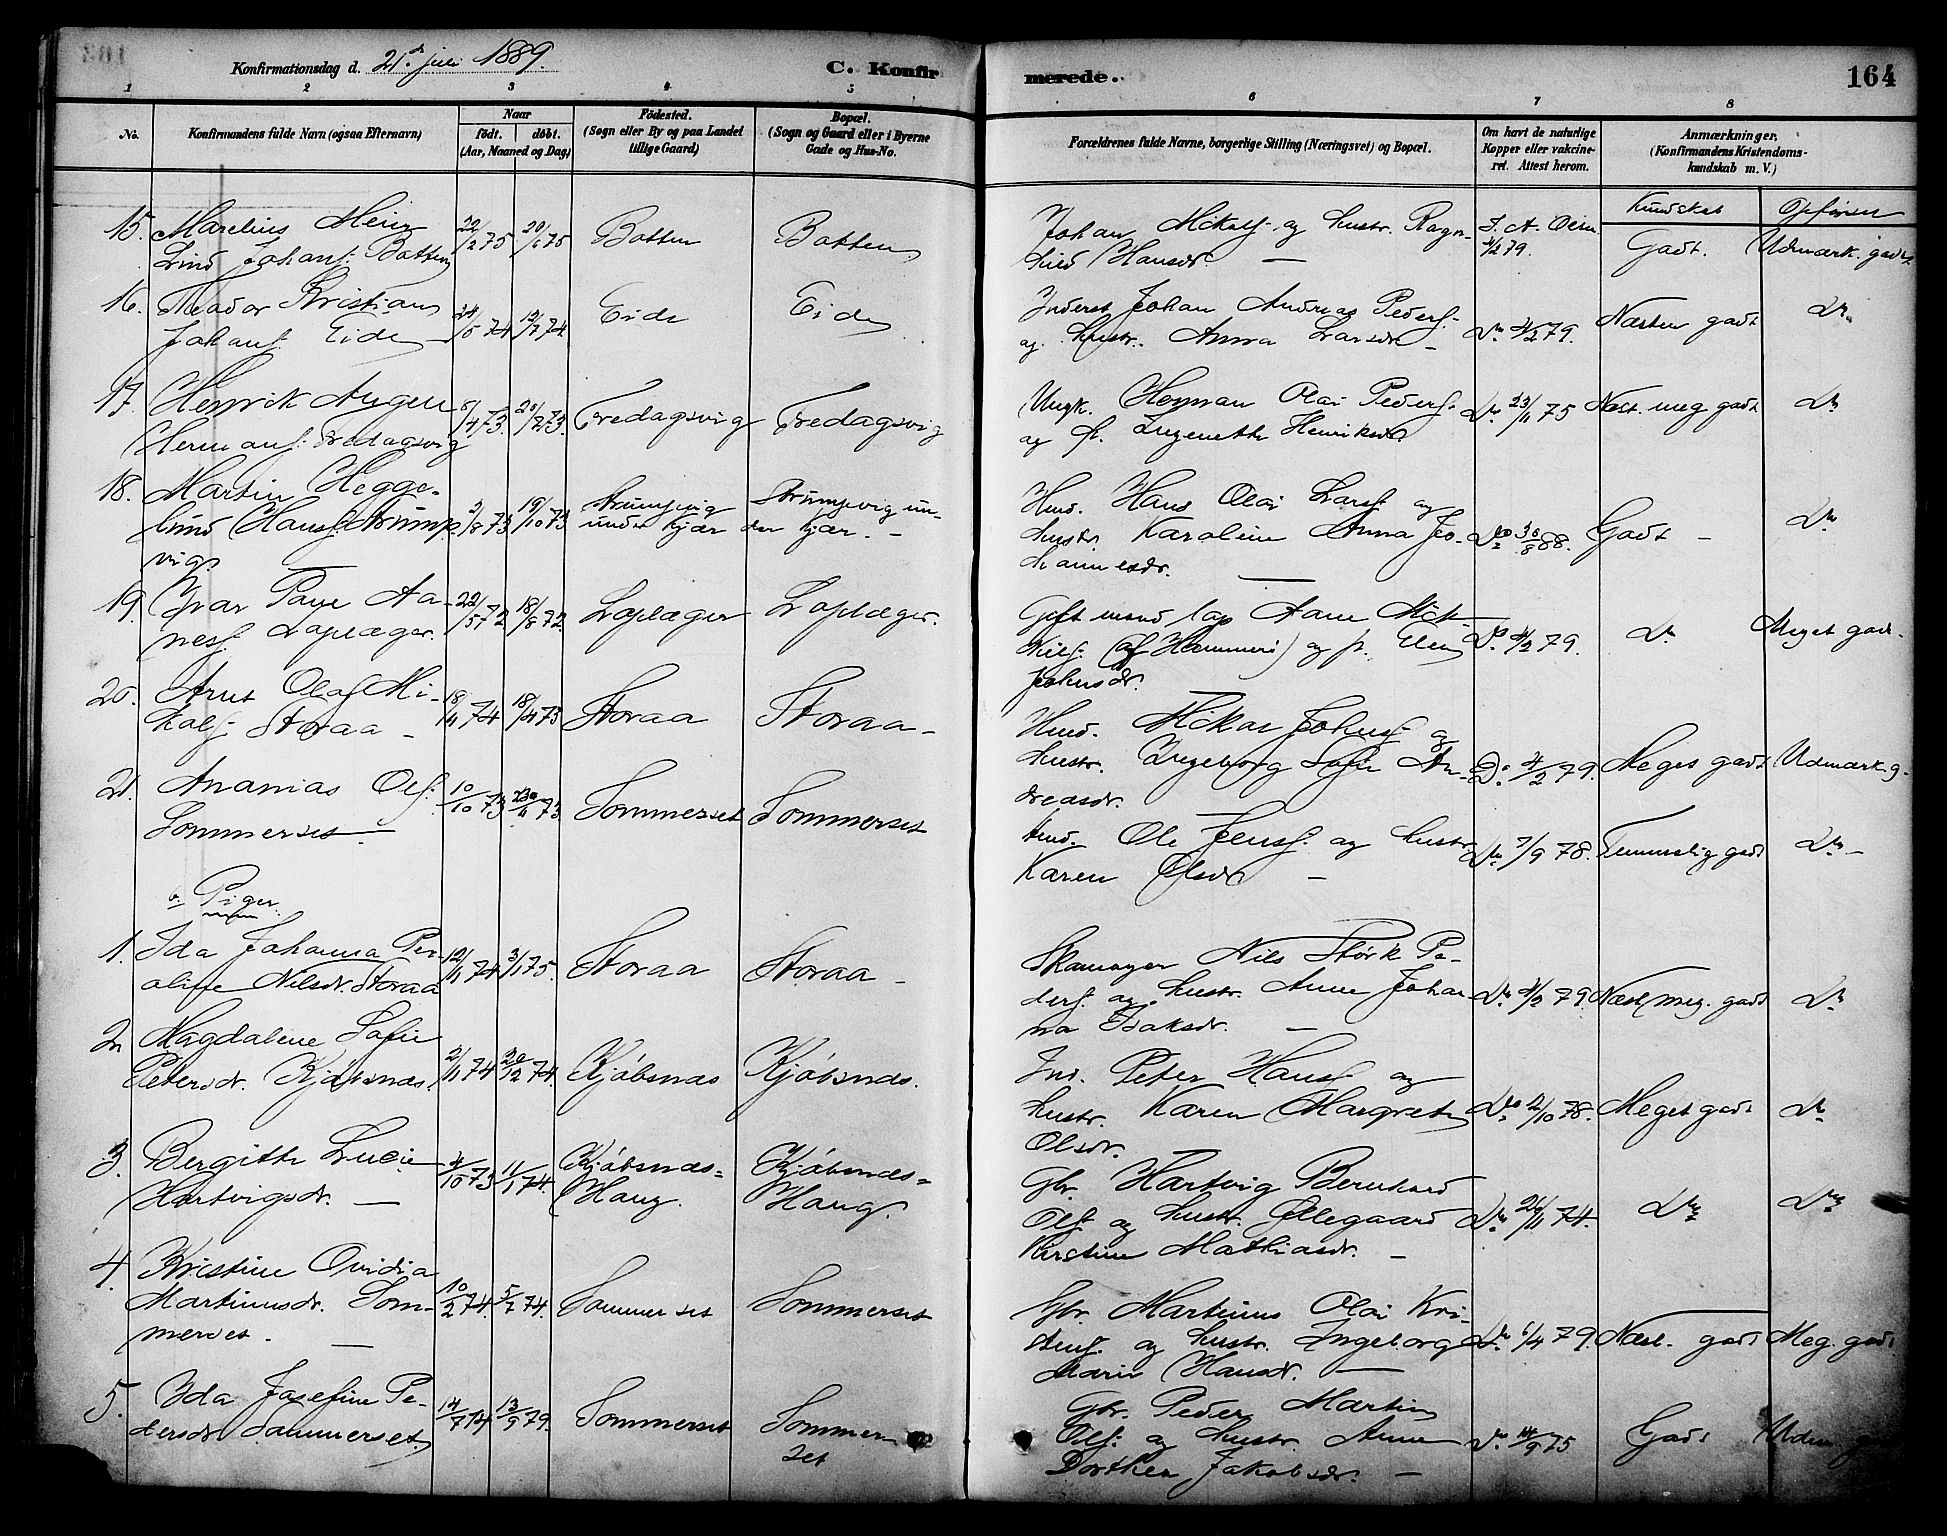 Konfirmationsdag d. 21de juli 1889.
C. Konfir
merede.
164
1 2 3 4 5
6 7 8
No.
Konfirmandens fulde Navn (ogsaa Efternavn)
Naar
født. døbt.
(Aar, Maaned og Dag)
Fødested.
(Sogn eller By og paa Landet
tillige Gaard)
Bopæl.
(Sogn og Gaard eller i Byerne
Gade og Hus-No.
Forældrenes fulde Navne, borgerlige Stilling (Næringsvei) og Bopæl.
Om havt de naturlige
Kopper eller vakcine-
ret. Attest herom.
Anmærkninger.
(Konfirmandens Kristendoms-
kundskab m. V.)
Kundskab Opførsel
15. Marelius Meier
Lind Johans. Botten
22/2 75 20/6 75 Botten Botten
Johan Mikals. og hustr. Ragn-
hild Hansdr. —
4/2 79. Godt. Udmærk. godt.
16. Theodor Kristian
Johans. Eide
24/5 74 12/7 74 Eide Eide
Inderst Johan Andreas Peders.
og hustr. Anna Larsdr. —
Do 4/2 79. Næsten godt Do
17. Henrik Angell
Hermans. Fredagsvig
8/4 73. 20/7 73. Fredagsvig Fredagsvig
Ungk. Herman Olai Peders.
og p. Ingeneth Henriksdr.
Do 23/11 75 Næst. meg. godt Do
18. Martin Hegge-
lund Hans. Strømp-
vig
2/8 73 19/10 73 Strumpvig
under Kjær
Strumpevig un-
der Kjær. —
Hmd. Hans Olai Lars. og
hustr. Karoline Anna Jo-
hannesdr. —
Do 30/8 88. Godt — Do
19. Ivar Paye Aa-
nes. Lapleger.
22/5 72 18/8 72. Laplæger Laplæger.
Gift mand lap Aane Mik-
kels. (af Hammeri) og p. Elen
Johnsdr.
Do 4/2 79. Do Meget godt.
20. Arnt Olaf Mi-
kals. Storaa —
18/11 74 18/4 75 Storaa Storaa —
Hmd. Mikal Johns. og
hustr. Ingeborg Sofie An-
dreasdr. —
Do 4/2 79. Meget godt Udmærk. g.
21. Ananias Ols.
Sommerset —
10/10 73 23/11 73 Sommerset Sommerset
Hmd. Ole Jens. og hustr.
Karen Olsdr —
Do 7/9 78. Temmelig godt Do —
b. Piger.
1. Ida Johanna Pe-
aline Nilsdr. Storaa
12/11 74 3/1 75. Storaa Storaa —
Skomager Nils Størk Pe-
ders. og hustr. Anne Johan
na Isaksdr. —
Do 4/2 79. Næst. meg. godt Do
2. Magdalene Sofie
Petersdr. Kjøbsnæs.
2/11 74 20/12 74. Kjøbsnæs Kjøbsnæs.
Ind. Peter Hans. og
hustr. Karen Margrete
Olsdr.
Do 2/10 78. Meget godt Do
3. Bergitte Lucie
Hartvigsdr. —
4/10 73 11/1 74. Kjøbsnæs-
Haug.
Kjøbsnæs-
Haug.
Gbr. Hartvig Bernhard
Ols. og hustr. Ollegaard
Kirstine Mathiasdr. —
Do 26/11 74. Do Do
4. Kristine Ovidia
Martinusdr. Som-
merset. —
10/2 74. 5/7 74. Sommerset Sommerset
Gbr. Martinus Olai Kri-
stens. og hustr. Ingeborg
Marie Hansdr. —
Do 6/4 79. Næst. godt Meg. godt
5. Ida Josefine Pe-
dersdr Sommerset
14/7 74 13/9 79. Sommerset Sommer
set
Gbr. Peder Martin
Ols. og hustr. Anne
Dorthea Jakobsdr. —
Do 14/9 75 Godt